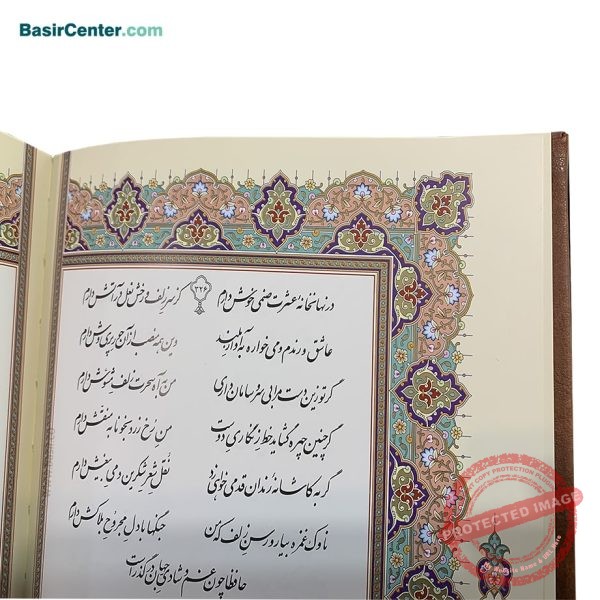 BasirCenter.com
در نهانخانهٔ عشرت صنمی خوش دارم ۳۲۶ کز سر زلف و رخش نعل در آتش دارم
عاشق و رندم و می خواره به آواز بلند وین همه منصب از آن حور پریوش دارم
گر تو زین دست مرا بی سر و سامان داری من به آه سحرت زلف مشوش دارم
گر چنین چهره گشاید خط زنگاری دوست من رخ زرد به خونابه منقش دارم
گر به کاشانهٔ رندان قدمی خواهی زد نقل شعر شکرین و می بیغش دارم
ناوک غمزه بیار و رسن زلف که من جنگها با دل مجروح بلاکش دارم
حافظا چون غم و شادی جهان در گذرست
PROTECTED IMAGE